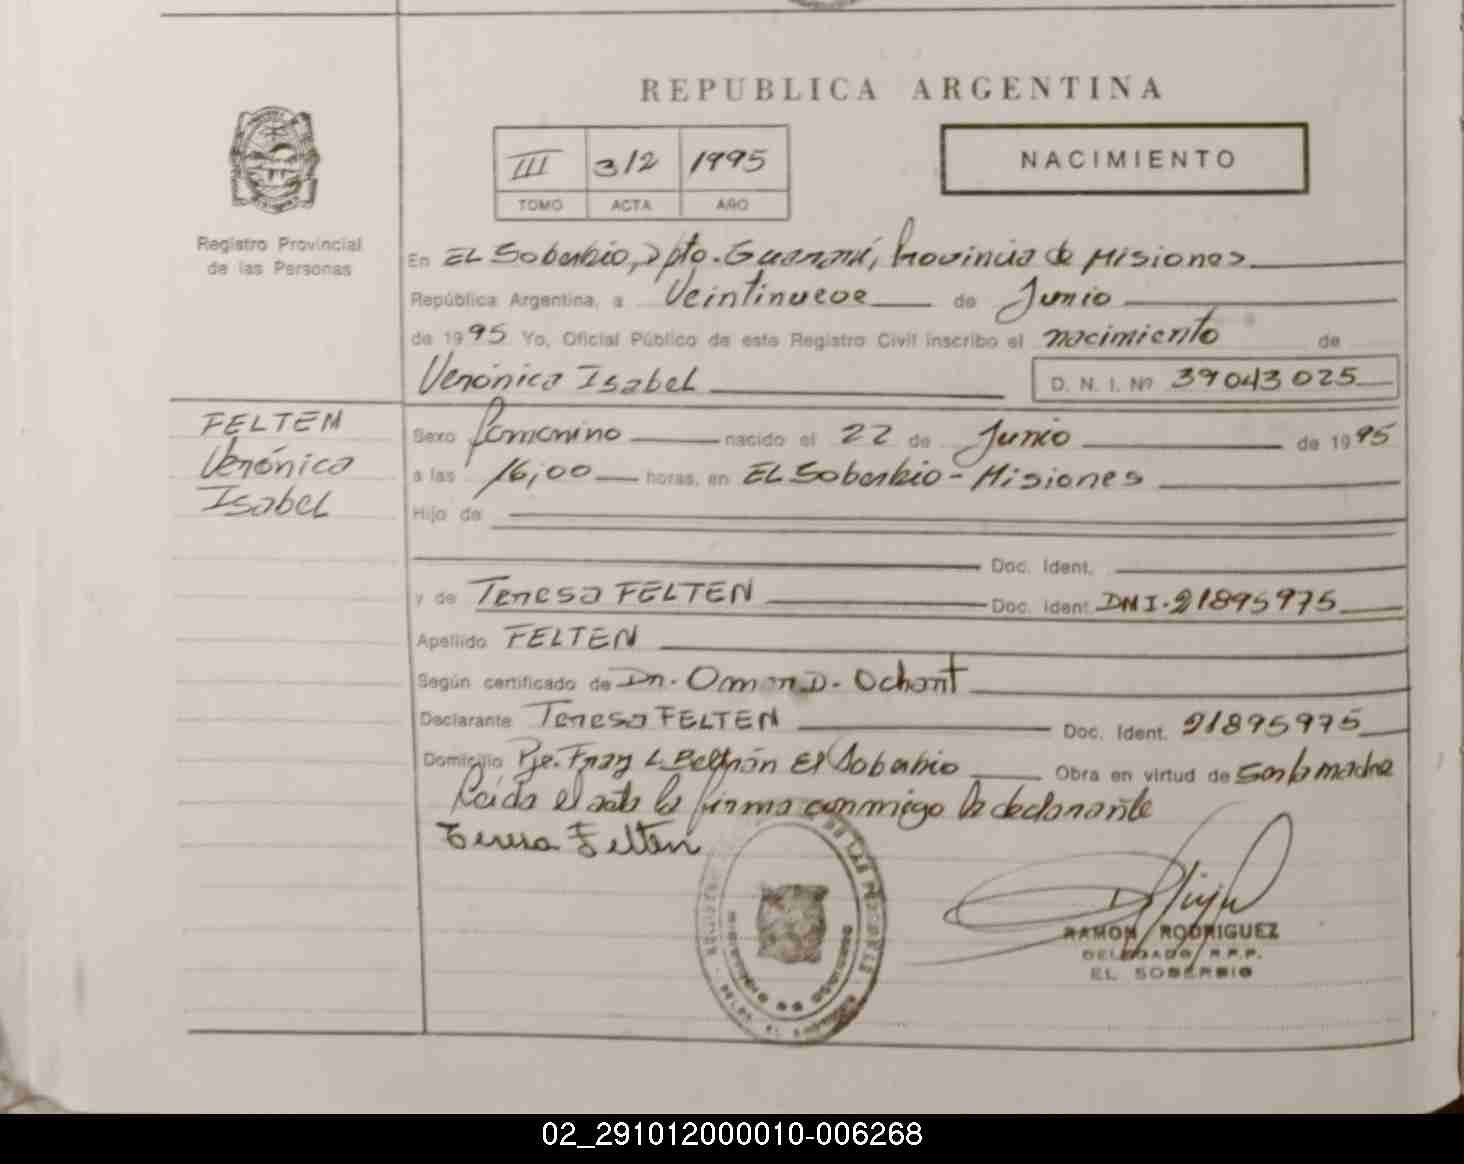 REPUBLICA ARGENTINA
III 312 1995
TOMO ACTA AÑO
NACIMIENTO
Registro Provincial
de las Personas
En EL Soberbio, Dpto. Guaraní, Provincia de Misiones
República Argentina, a Veintinueve de Junio
de 1995 Yo, Oficial Público de este Registro Civil inscribo el nacimiento de
Verónica Isabel D. N. I. Nº 39043025
FELTEN
Verónica
Isabel
Sexo femenino nacido el 22 de Junio de 1995
a las 16,00 horas, en EL Soberbio - Misiones
Hijo de
Doc. Ident.
y de Teresa FELTEN Doc. Ident. DNI. 21895975
Apellido FELTEN
Según certificado de Dr. Omar D. Ochant
Declarante Teresa FELTEN Doc. Ident. 21895975
Domicilio Pje. Fray L. Beltrán El Soberbio Obra en virtud de ser la madre
Leída el acta la firma conmigo la declarante
Teresa Felten
RAMON RODRIGUEZ
DELEGADO R.P.P.
EL SOBERBIO
DE LAS PERSONAS
MINISTERIO DE GOBIERNO
02_291012000010-006268